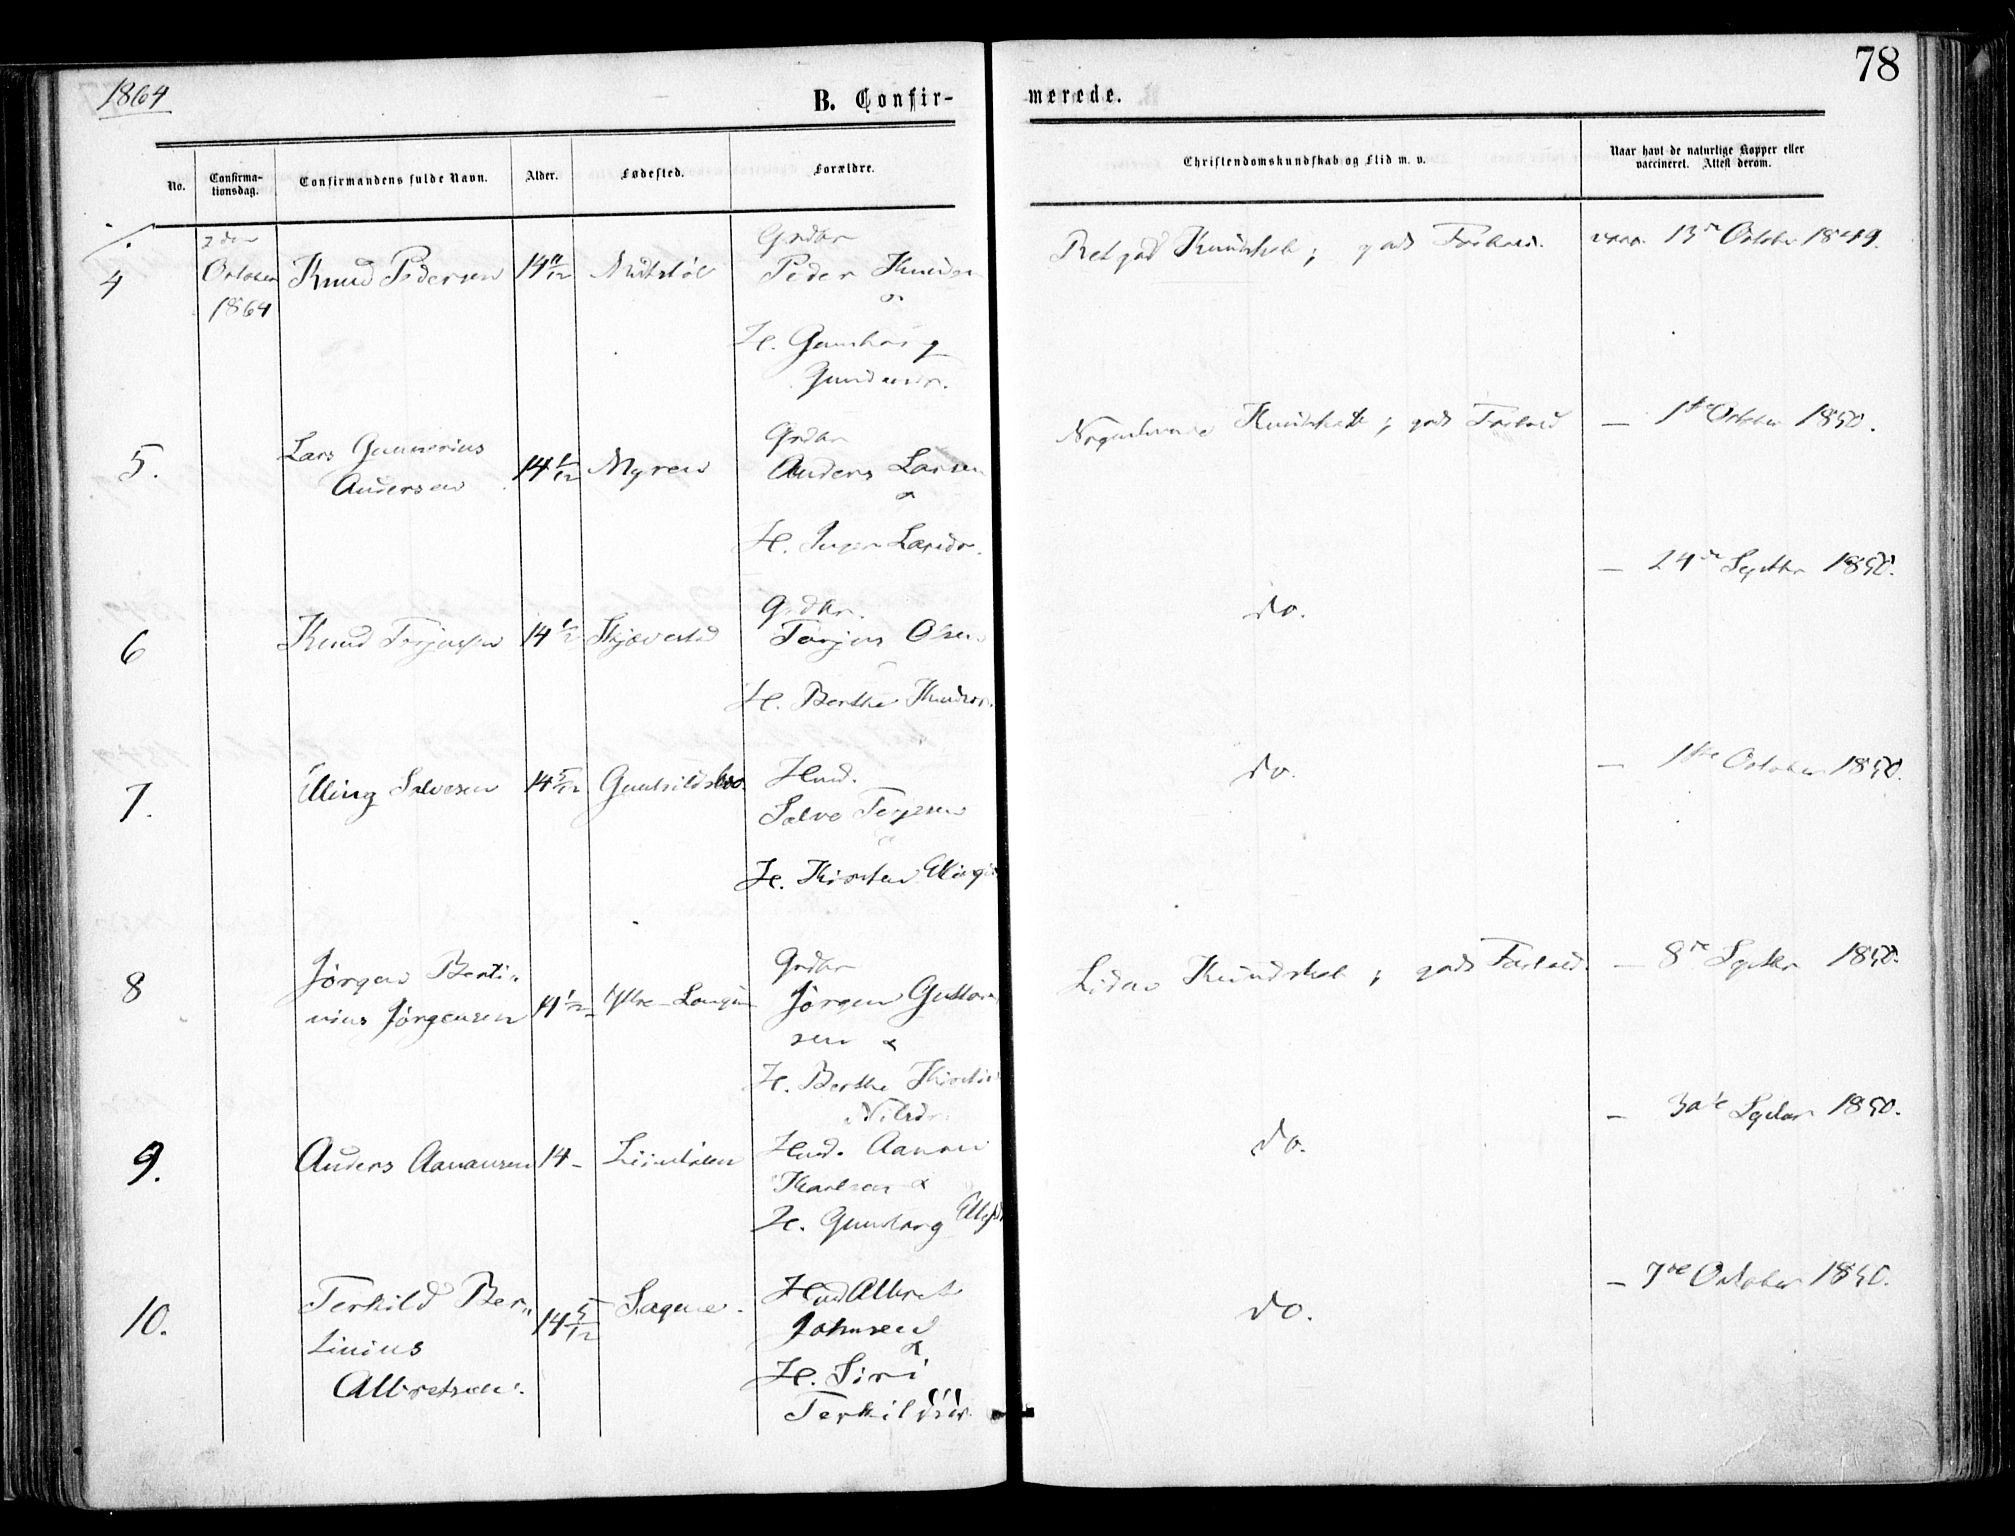 1864
78
B. Confir-
merede.
No.
Confirma-
tionsdag.
Confirmandens fulde Navn.
Alder.
Fødested.
Forældre.
Christendomskundskab og Flid m. v.
Naar havt de naturlige Kopper eller
vaccineret. Attest derom.
4
2den
October
1864
Knud Pedersen
14 11/12
Grdbr
Peder Knudsen
&
H. Gunborg
Gundersdr.
Ret god Kundskab; god Forhold.
vacc. 13de October 1849.
5.
Lars Gunnerius
Andersen
14
Myren
Grdbr
Anders Larsen
&
H. Inger Larsdr.
Nogenlunde Kundskab; god Forhold
— 1ste October 1850.
6
Knud Terjesen
14 1/2
Grdbr.
Terjus Olsen
H. Berthe Knudsdr.
do.
— 24de Septbr 1850.
7.
Elling Salvesen
14 5/12
Hmd.
Salve Terjesen
&
H. Kirsten Ellingsdr
do.
— 1ste October 1850.
8
Jørgen Berti-
nius Jørgensen
14 1/2
Ytre-
Grdbr
Jørgen Gustav
sen &
H. Berthe Kirstine
Nilsdr.
Liden Kundskab; god Forhold.
— 8de Septbr 1850.
9.
Anders Aanansen
14 -
Hmd. Aanon
&
H. Gunborg
do.
— 30te Septbr 1850.
10.
Terkild Ber-
tinius
Albretsen.
14 5/12
Sagene.
Hmd Albret
Johnsen
&
H. Siri
Terkildsdr.
do.
— 7de October 1850.